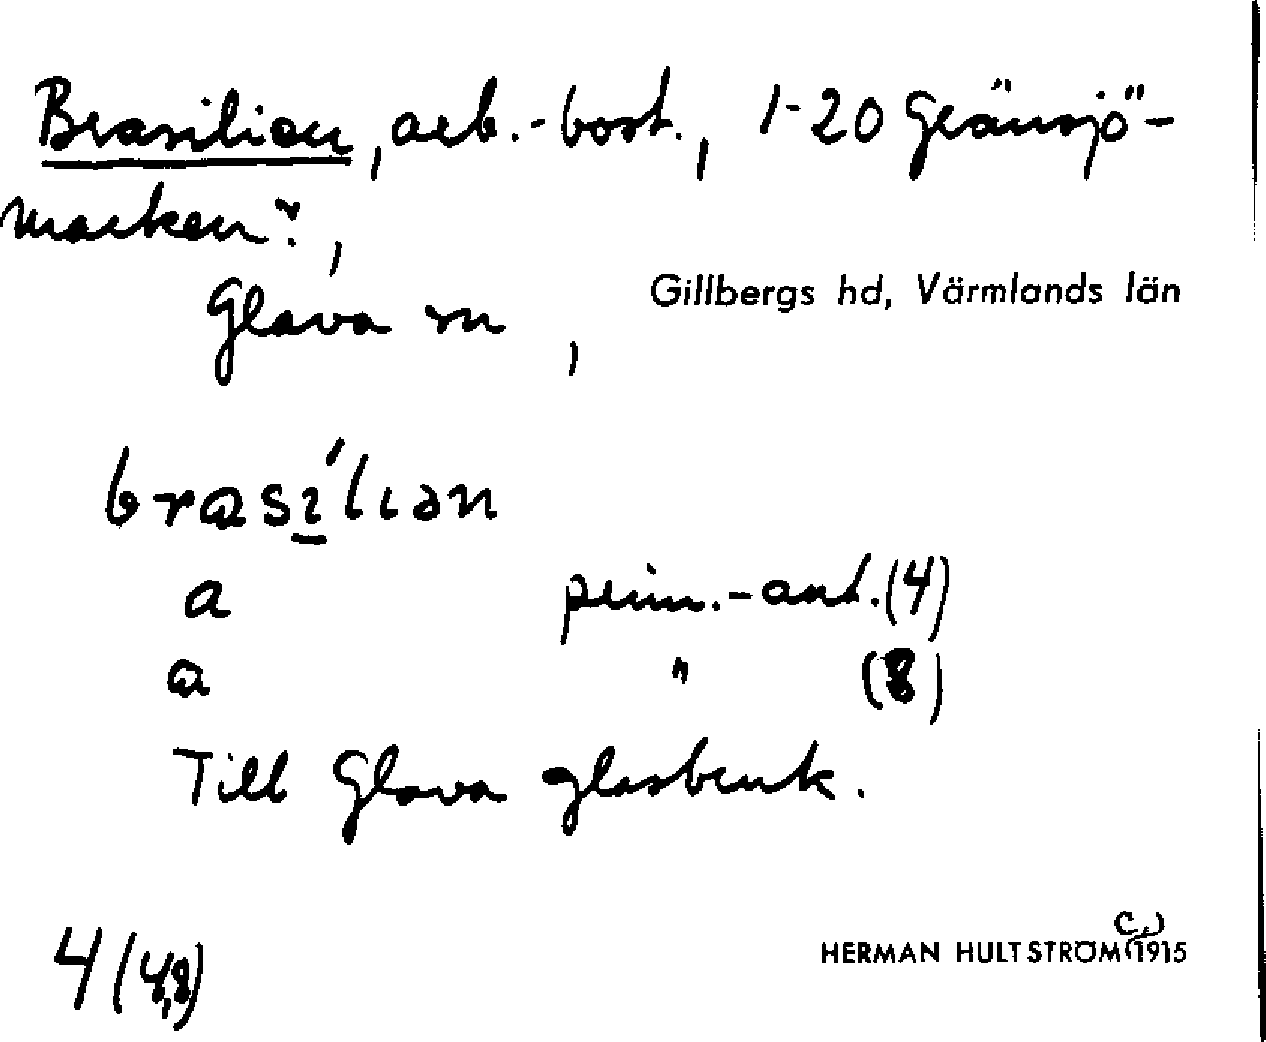 Brasilien, arb.-bost., 1-20 Gränsjö-
marken?,
Glava sn,
Gillbergs hd, Värmlands län
brasí̱lıən
a prim.-ant. (4)
ɑ " (8)
Till Glava glasbruk.
4 (4,8)
HERMAN HULTSTRÖM (c.) 1915